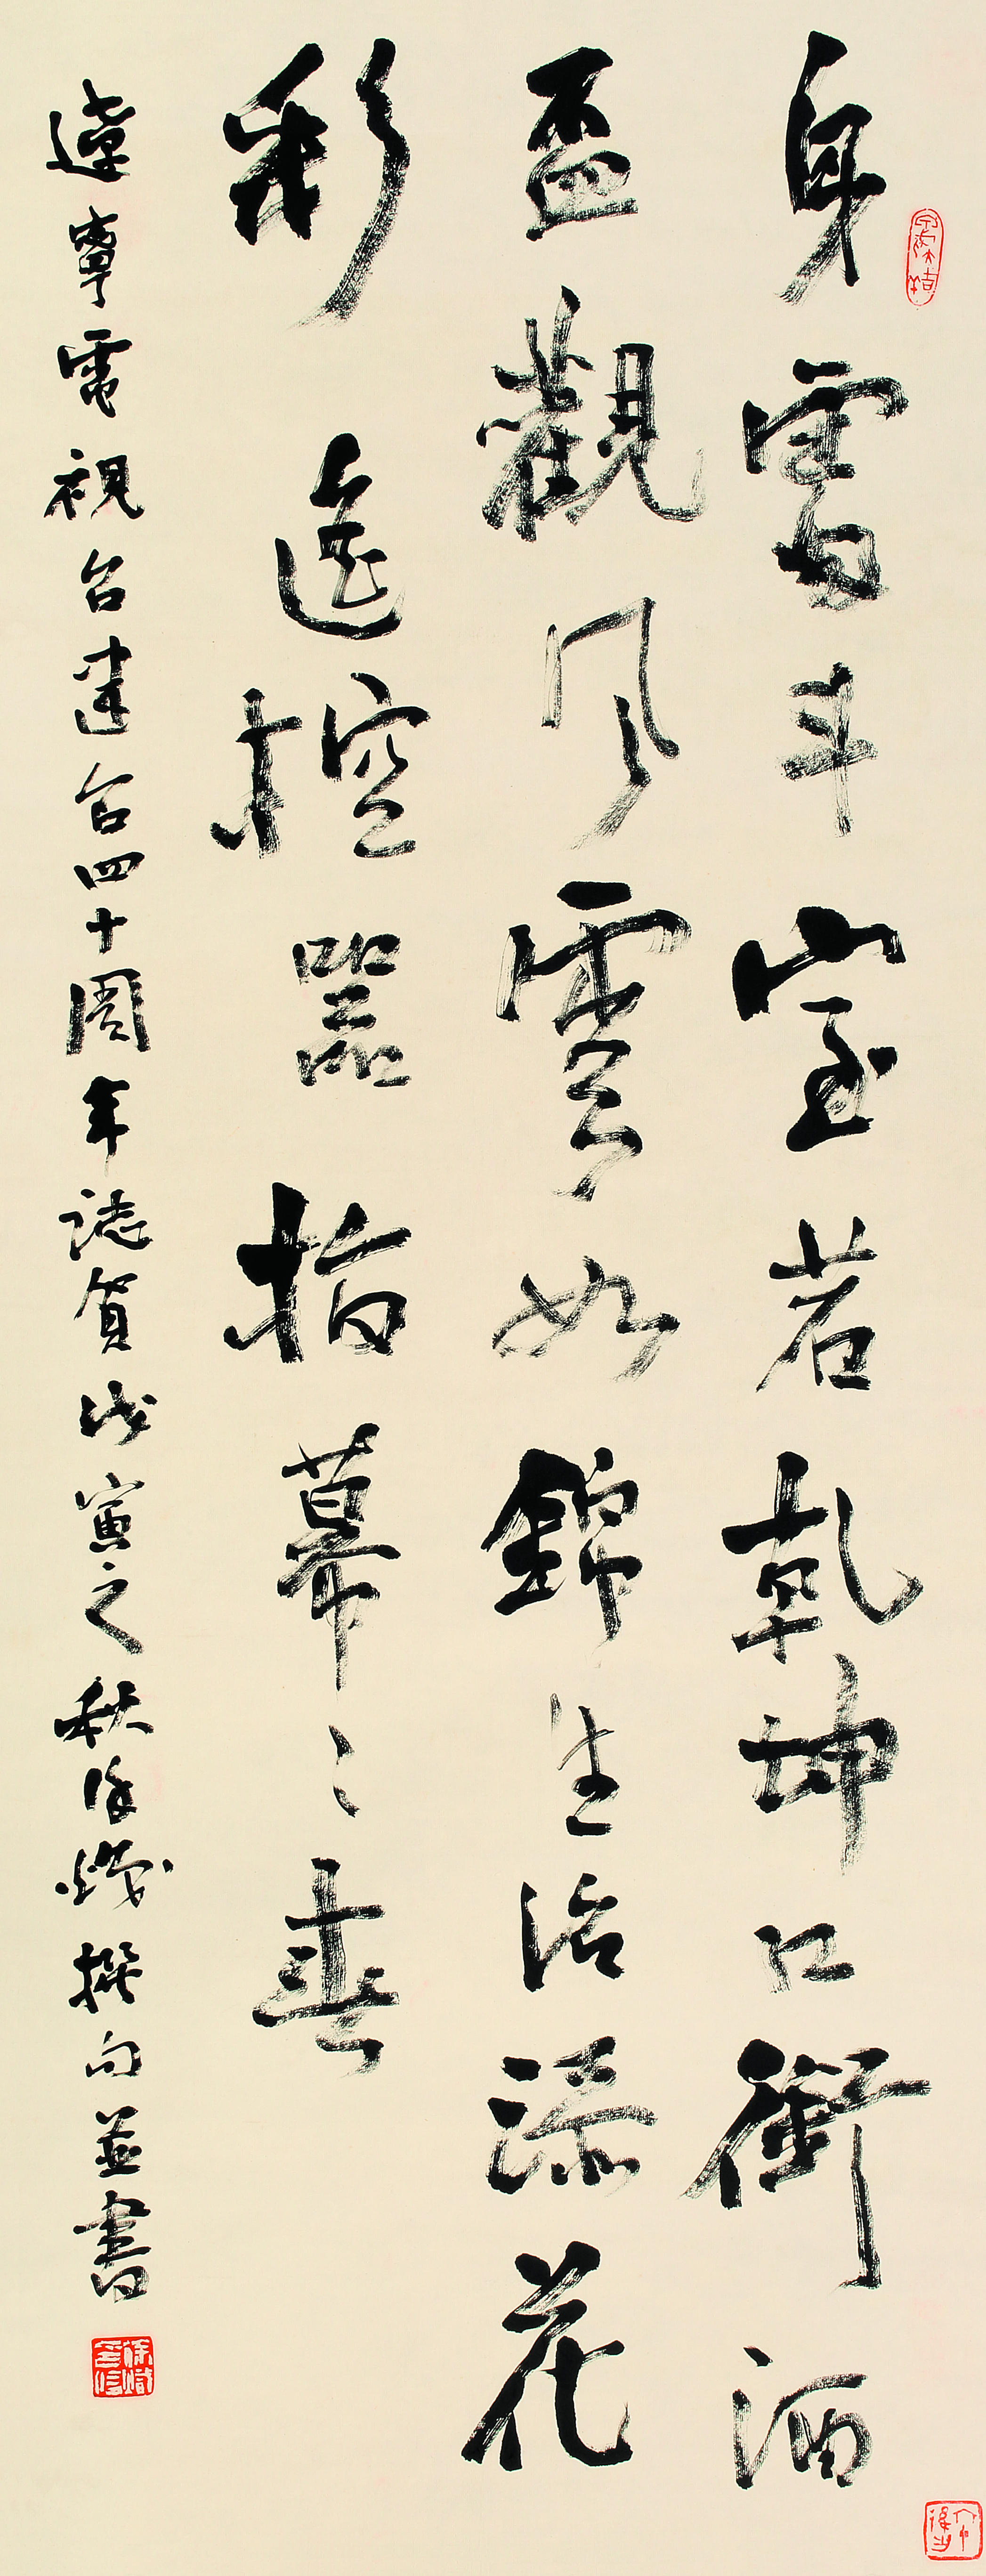 身留斗室若乾坤口銜酒
盃觀風雲如錦生活添花
彩遙控器指幕幕春
遼寧電視台建台四十周年誌賀戊寅之秋徐熾撰句並書